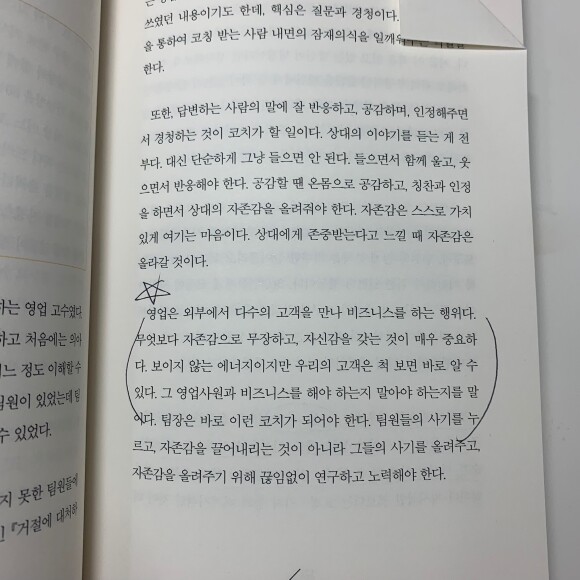 쓰였던 내용이기도 한데, 핵심은 질문과 경청이다.
을 통하여 코칭 받는 사람 내면의 잠재의식을 일깨워
한다.
또한, 답변하는 사람의 말에 잘 반응하고, 공감하며, 인정해주면
서 경청하는 것이 코치가 할 일이다. 상대의 이야기를 듣는 게 전
부다. 대신 단순하게 그냥 들으면 안 된다. 들으면서 함께 울고, 웃
으면서 반응해야 한다. 공감할 땐 온몸으로 공감하고, 칭찬과 인정
을 하면서 상대의 자존감을 올려줘야 한다. 자존감은 스스로 가치
있게 여기는 마음이다. 상대에게 존중받는다고 느낄 때 자존감은
올라갈 것이다.
영업은 외부에서 다수의 고객을 만나 비즈니스를 하는 행위다.
무엇보다 자존감으로 무장하고, 자신감을 갖는 것이 매우 중요하
다. 보이지 않는 에너지이지만 우리의 고객은 척 보면 바로 알 수
있다. 그 영업사원과 비즈니스를 해야 하는지 말아야 하는지를 말
이다. 팀장은 바로 이런 코치가 되어야 한다. 팀원들의 사기를 누
르고, 자존감을 끌어내리는 것이 아니라 그들의 사기를 올려주고,
자존감을 올려주기 위해 끊임없이 연구하고 노력해야 한다.
하는 영업 고수였다.
하고 처음에는 의아
느 정도 이해할 수
팀원이 있었는데 팀
수 있었다.
지 못한 팀원들에
인 『거절에 대처하